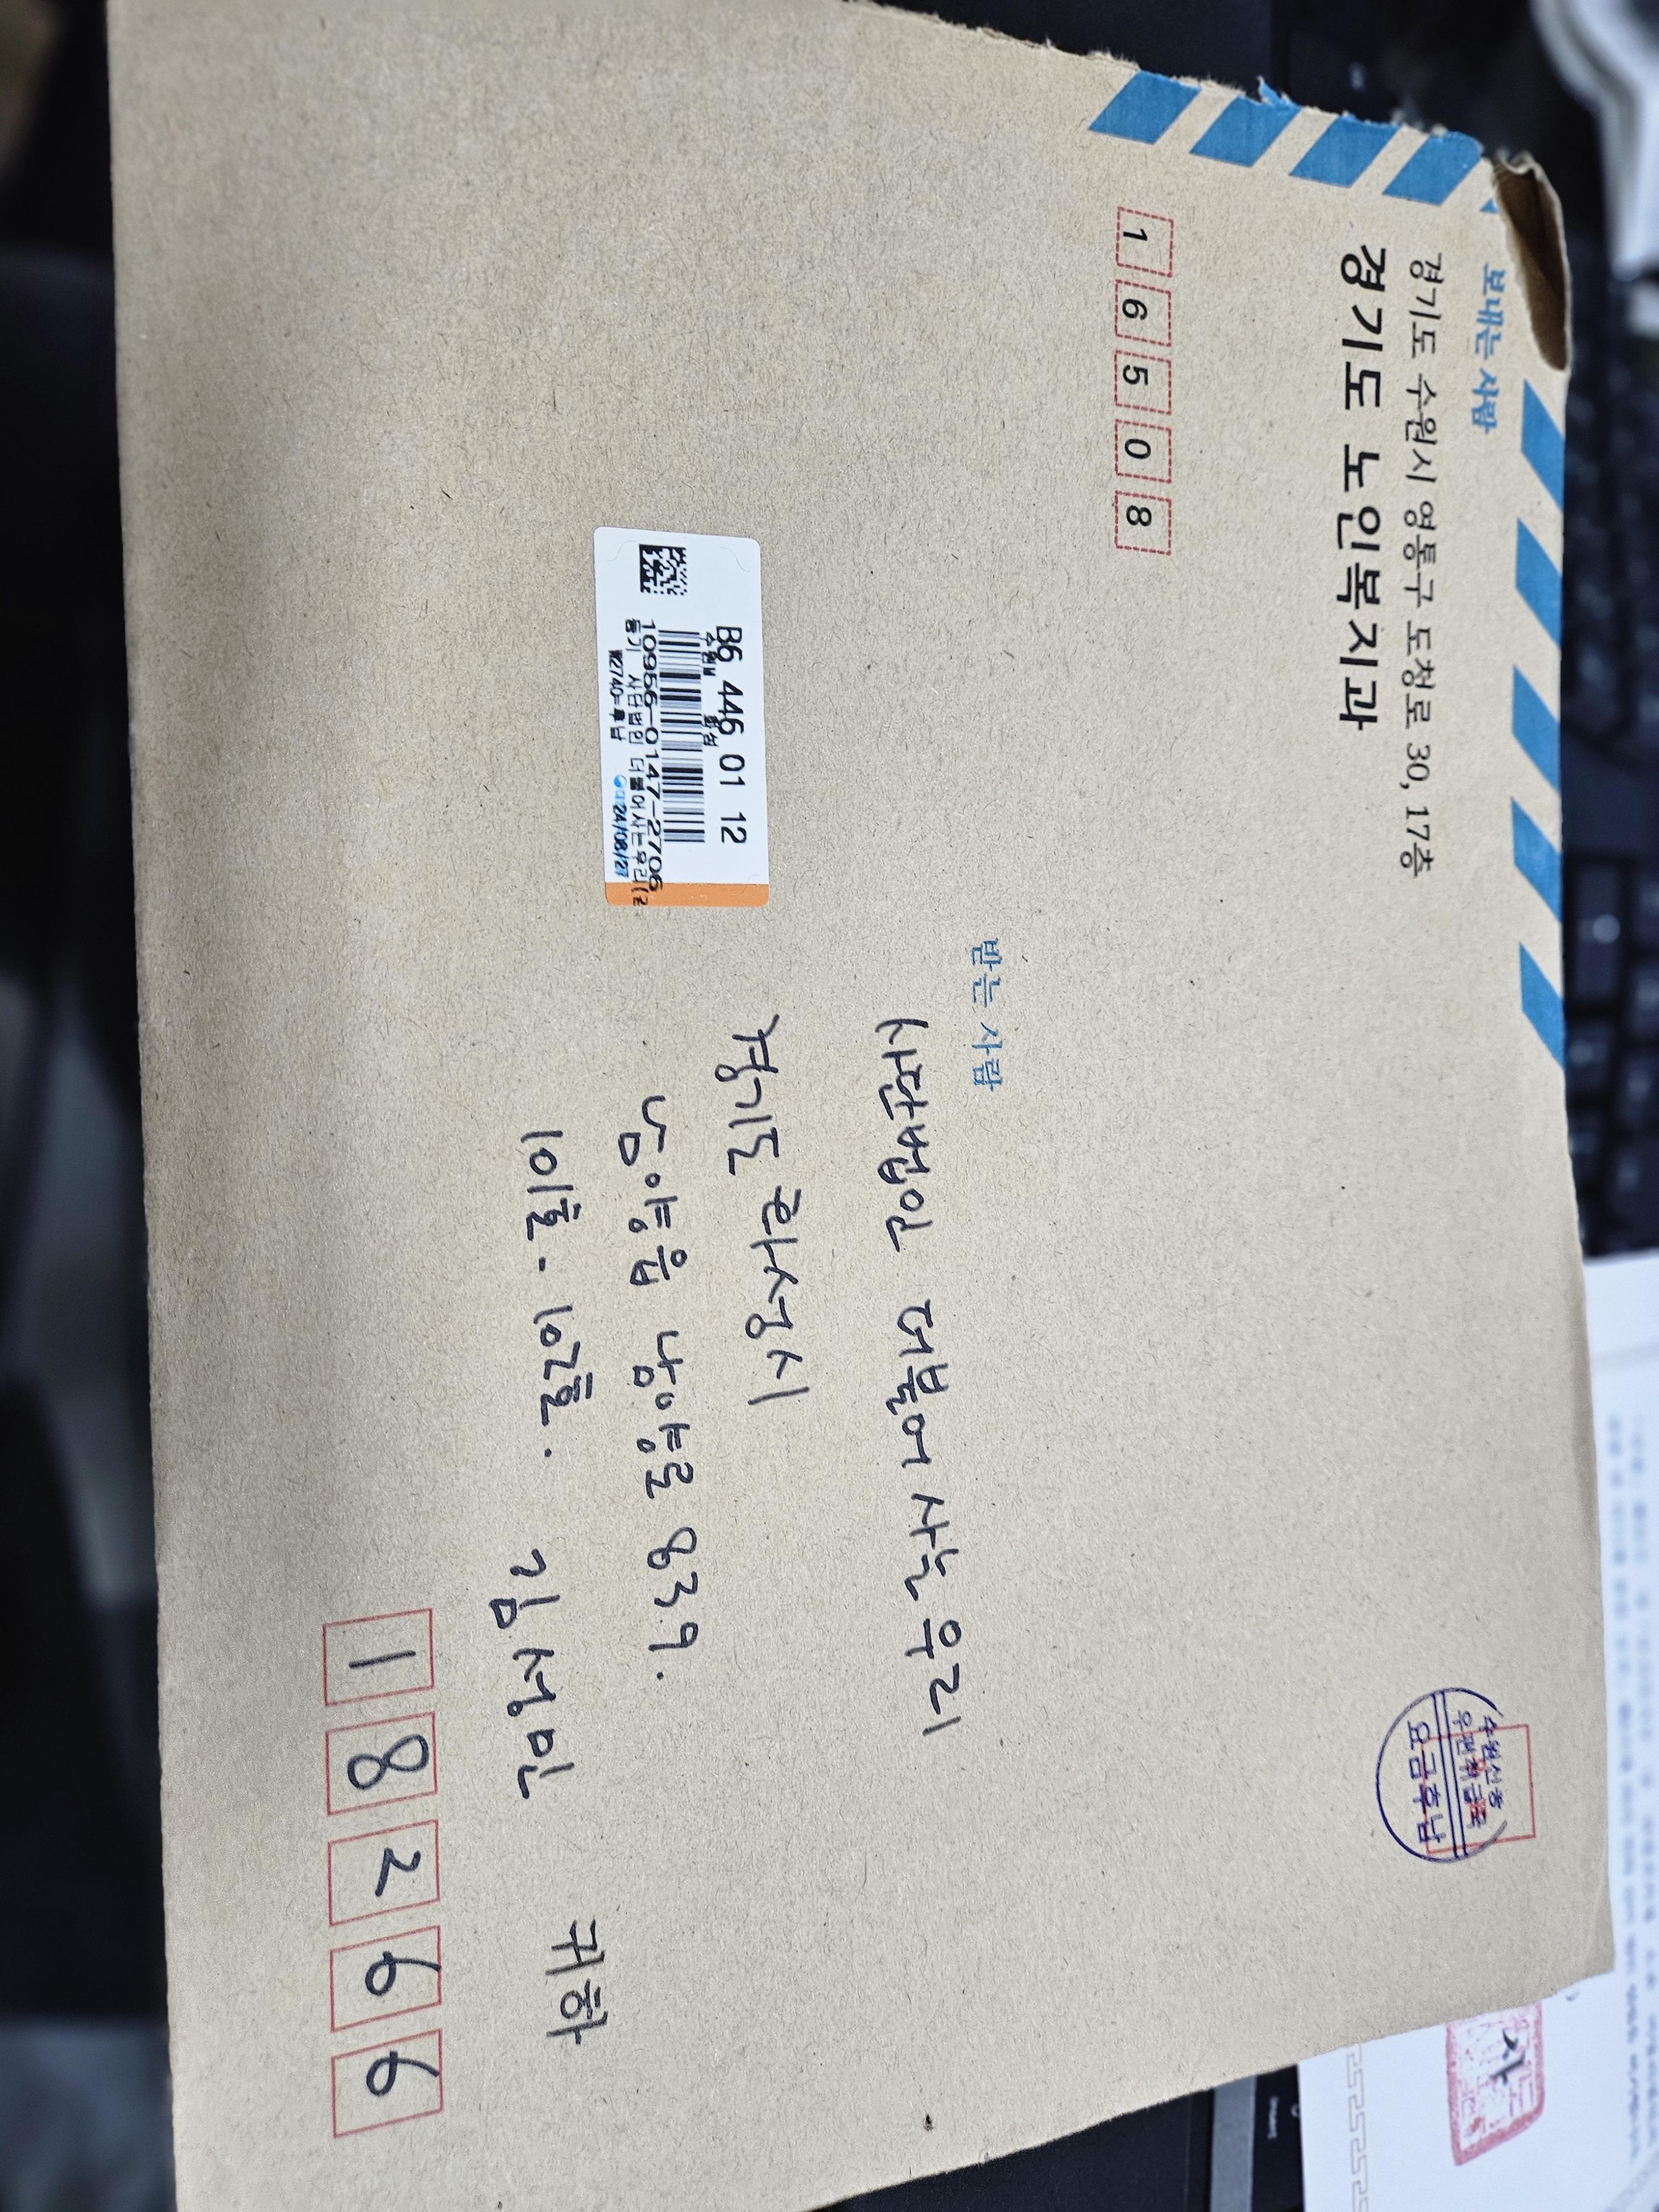 보내는 사람
경기도 수원시 영통구 도청로 30, 17층
경기도 노인복지과
1 6 5 0 8
수원신흥
우편취급국
요금후납
B6 446 01 12
수원M 화성
10956-0147-2706
등기 사단법인 더불어사는우리(
W2740=후납 24/08/27
받는 사람
사단법인 더불어사는우리
경기도 화성시
남양읍 남양로 839.
101호. 102호.
김성민 귀하
1 8 2 6 6